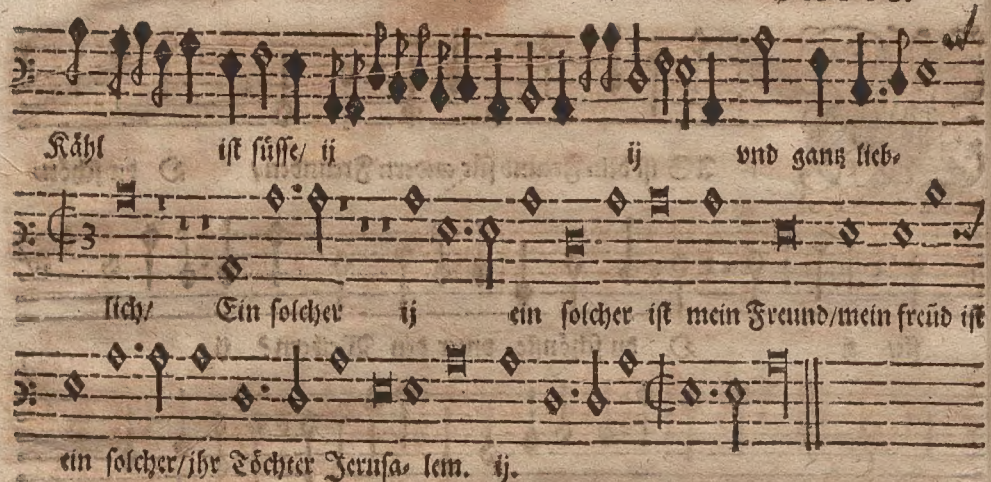 Kähl ist süsse/ ij ij vnd gantz lieb-
lich/ Ein solcher ij ein solcher ist mein Freund/mein freūd ist
ein solcher/jhr Töchter Jerusa- lem. ij.